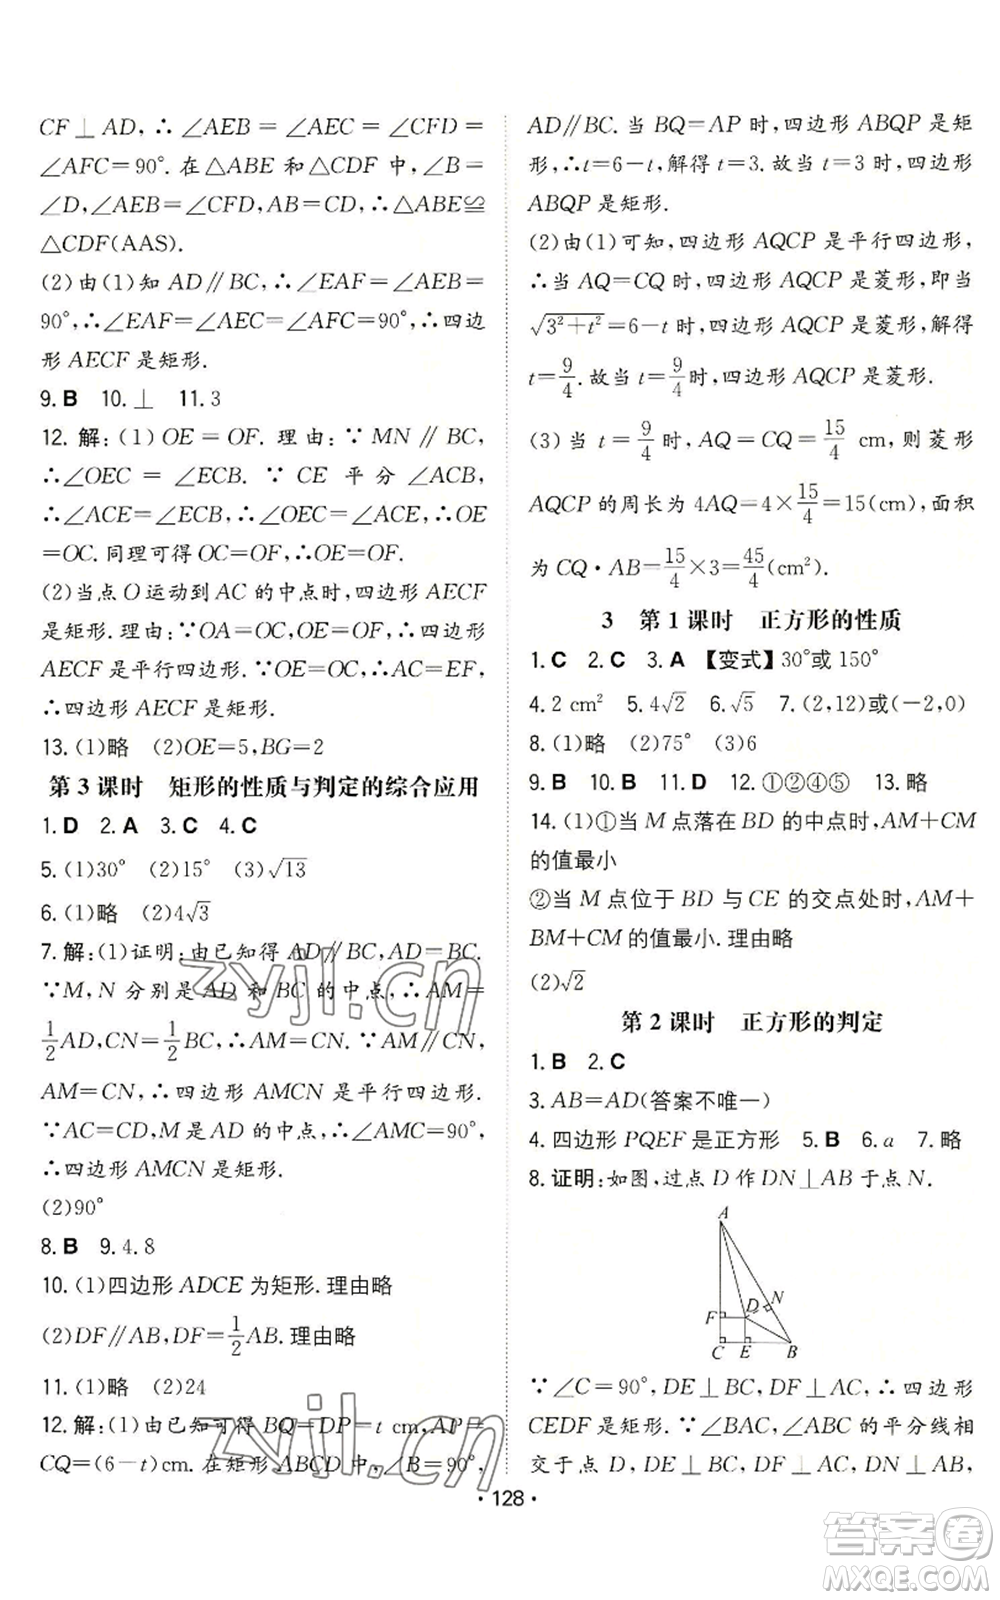 CF⊥AD,∴∠AEB=∠AEC=∠CFD=
∠AFC=90°.在△ABE和△CDF中,∠B=
∠D,∠AEB=∠CFD,AB=CD,∴△ABE≌
△CDF(AAS).
(2)由(1)知AD∥BC,∴∠EAF=∠AEB=
90°,∴∠EAF=∠AEC=∠AFC=90°,∴四边
形AECF是矩形.
9.B 10.⊥ 11.3
12.解:(1)OE=OF.理由:∵MN∥BC,
∴∠OEC=∠ECB.∵CE平分∠ACB,
∴∠ACE=∠ECB,∴∠OEC=∠ACE,∴OE
=OC.同理可得OC=OF,∴OE=OF.
(2)当点O运动到AC的中点时,四边形AECF
是矩形.理由:∵OA=OC,OE=OF,∴四边形
AECF是平行四边形.∵OE=OC,∴AC=EF,
∴四边形AECF是矩形.
13.(1)略 (2)OE=5,BG=2
第3课时 矩形的性质与判定的综合应用
1.D 2.A 3.C 4.C
5.(1)30° (2)15° (3)√13
6.(1)略 (2)4√3
7.解:(1)证明:由已知得AD∥BC,AD=BC.
∵M,N分别是AD和BC的中点,∴AM=
1/2AD,CN=1/2BC,∴AM=CN.又∵AM∥CN,
AM=CN,∴四边形AMCN是平行四边形.
∵AC=CD,M是AD的中点,∴∠AMC=90°,
∴四边形AMCN是矩形.
(2)90°
8.B 9.4.8
10.(1)四边形ADCE为矩形.理由略
(2)DF∥AB,DF=1/2AB.理由略
11.(1)略 (2)24
12.解:(1)由已知可得BQ=DP=t cm,AP=
CQ=(6-t)cm.在矩形ABCD中,∠B=90°,
AD∥BC.当BQ=AP时,四边形ABQP是矩
形,∴t=6-t,解得t=3.故当t=3时,四边形
ABQP是矩形.
(2)由(1)可知,四边形AQCP是平行四边形,
∴当AQ=CQ时,四边形AQCP是菱形,即当
√(3²+t²)=6-t时,四边形AQCP是菱形,解得
t=9/4.故当t=9/4时,四边形AQCP是菱形.
(3)当t=9/4时,AQ=CQ=15/4 cm,则菱形
AQCP的周长为4AQ=4×15/4=15(cm),面积
为CQ·AB=15/4×3=45/4(cm²).
3 第1课时 正方形的性质
1.C 2.C 3.A 【变式】30°或150°
4.2 cm² 5.4√2 6.√5 7.(2,12)或(-2,0)
8.(1)略 (2)75° (3)6
9.B 10.B 11.D 12.①②④⑤ 13.略
14.(1)①当M点落在BD的中点时,AM+CM
的值最小
②当M点位于BD与CE的交点处时,AM+
BM+CM的值最小.理由略
(2)√2
第2课时 正方形的判定
1.B 2.C
3.AB=AD(答案不唯一)
4.四边形PQEF是正方形 5.B 6.a 7.略
8.证明:如图,过点D作DN⊥AB于点N.
A
F D N
C E B
∵∠C=90°,DE⊥BC,DF⊥AC,∴四边形
CEDF是矩形.∵∠BAC,∠ABC的平分线相
交于点D,DE⊥BC,DF⊥AC,DN⊥AB,
·128·
zyjl.cn
zyjl.cn
答案圈
MXQE.COM